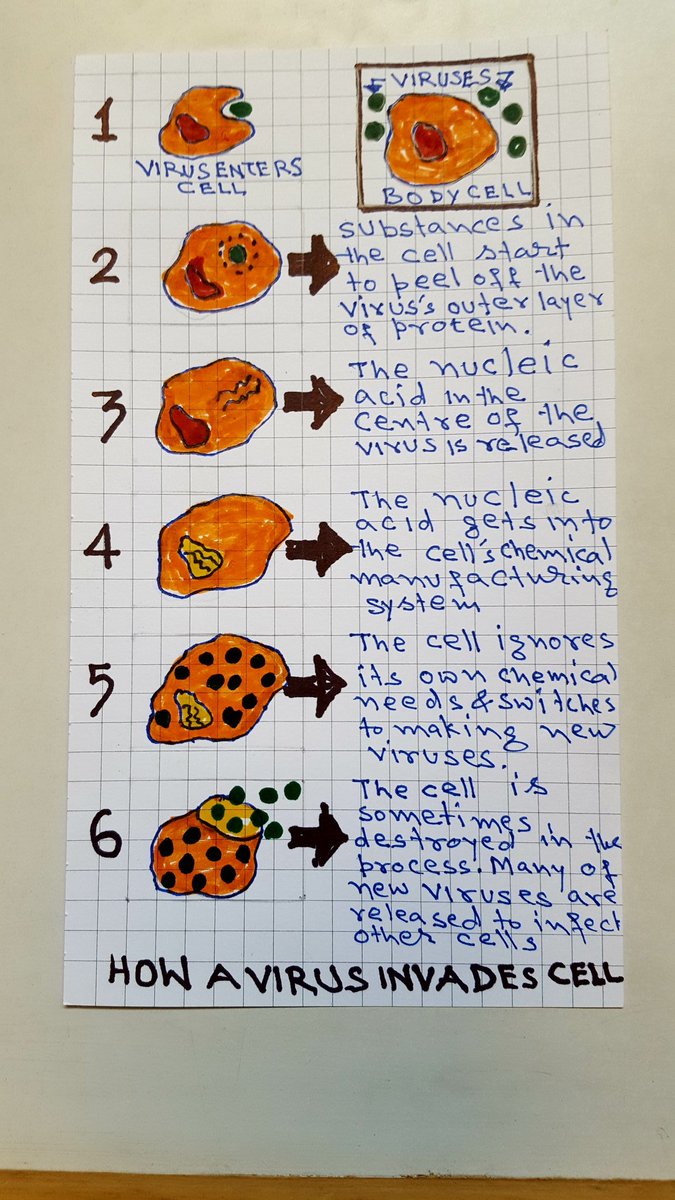 1
VIRUS ENTERS
CELL
VIRUSES
BODY CELL
2
substances in
the cell start
to peel off the
virus's outer layer
of protein.
3
The nucleic
acid in the
centre of the
virus is released
4
The nucleic
acid gets into
the cell's chemical
manufacturing
system
5
The cell ignores
its own chemical
needs & switches
to making new
viruses.
6
The cell is
sometimes
destroyed in the
process. Many of
new viruses are
released to infect
other cells
HOW A VIRUS INVADES CELL